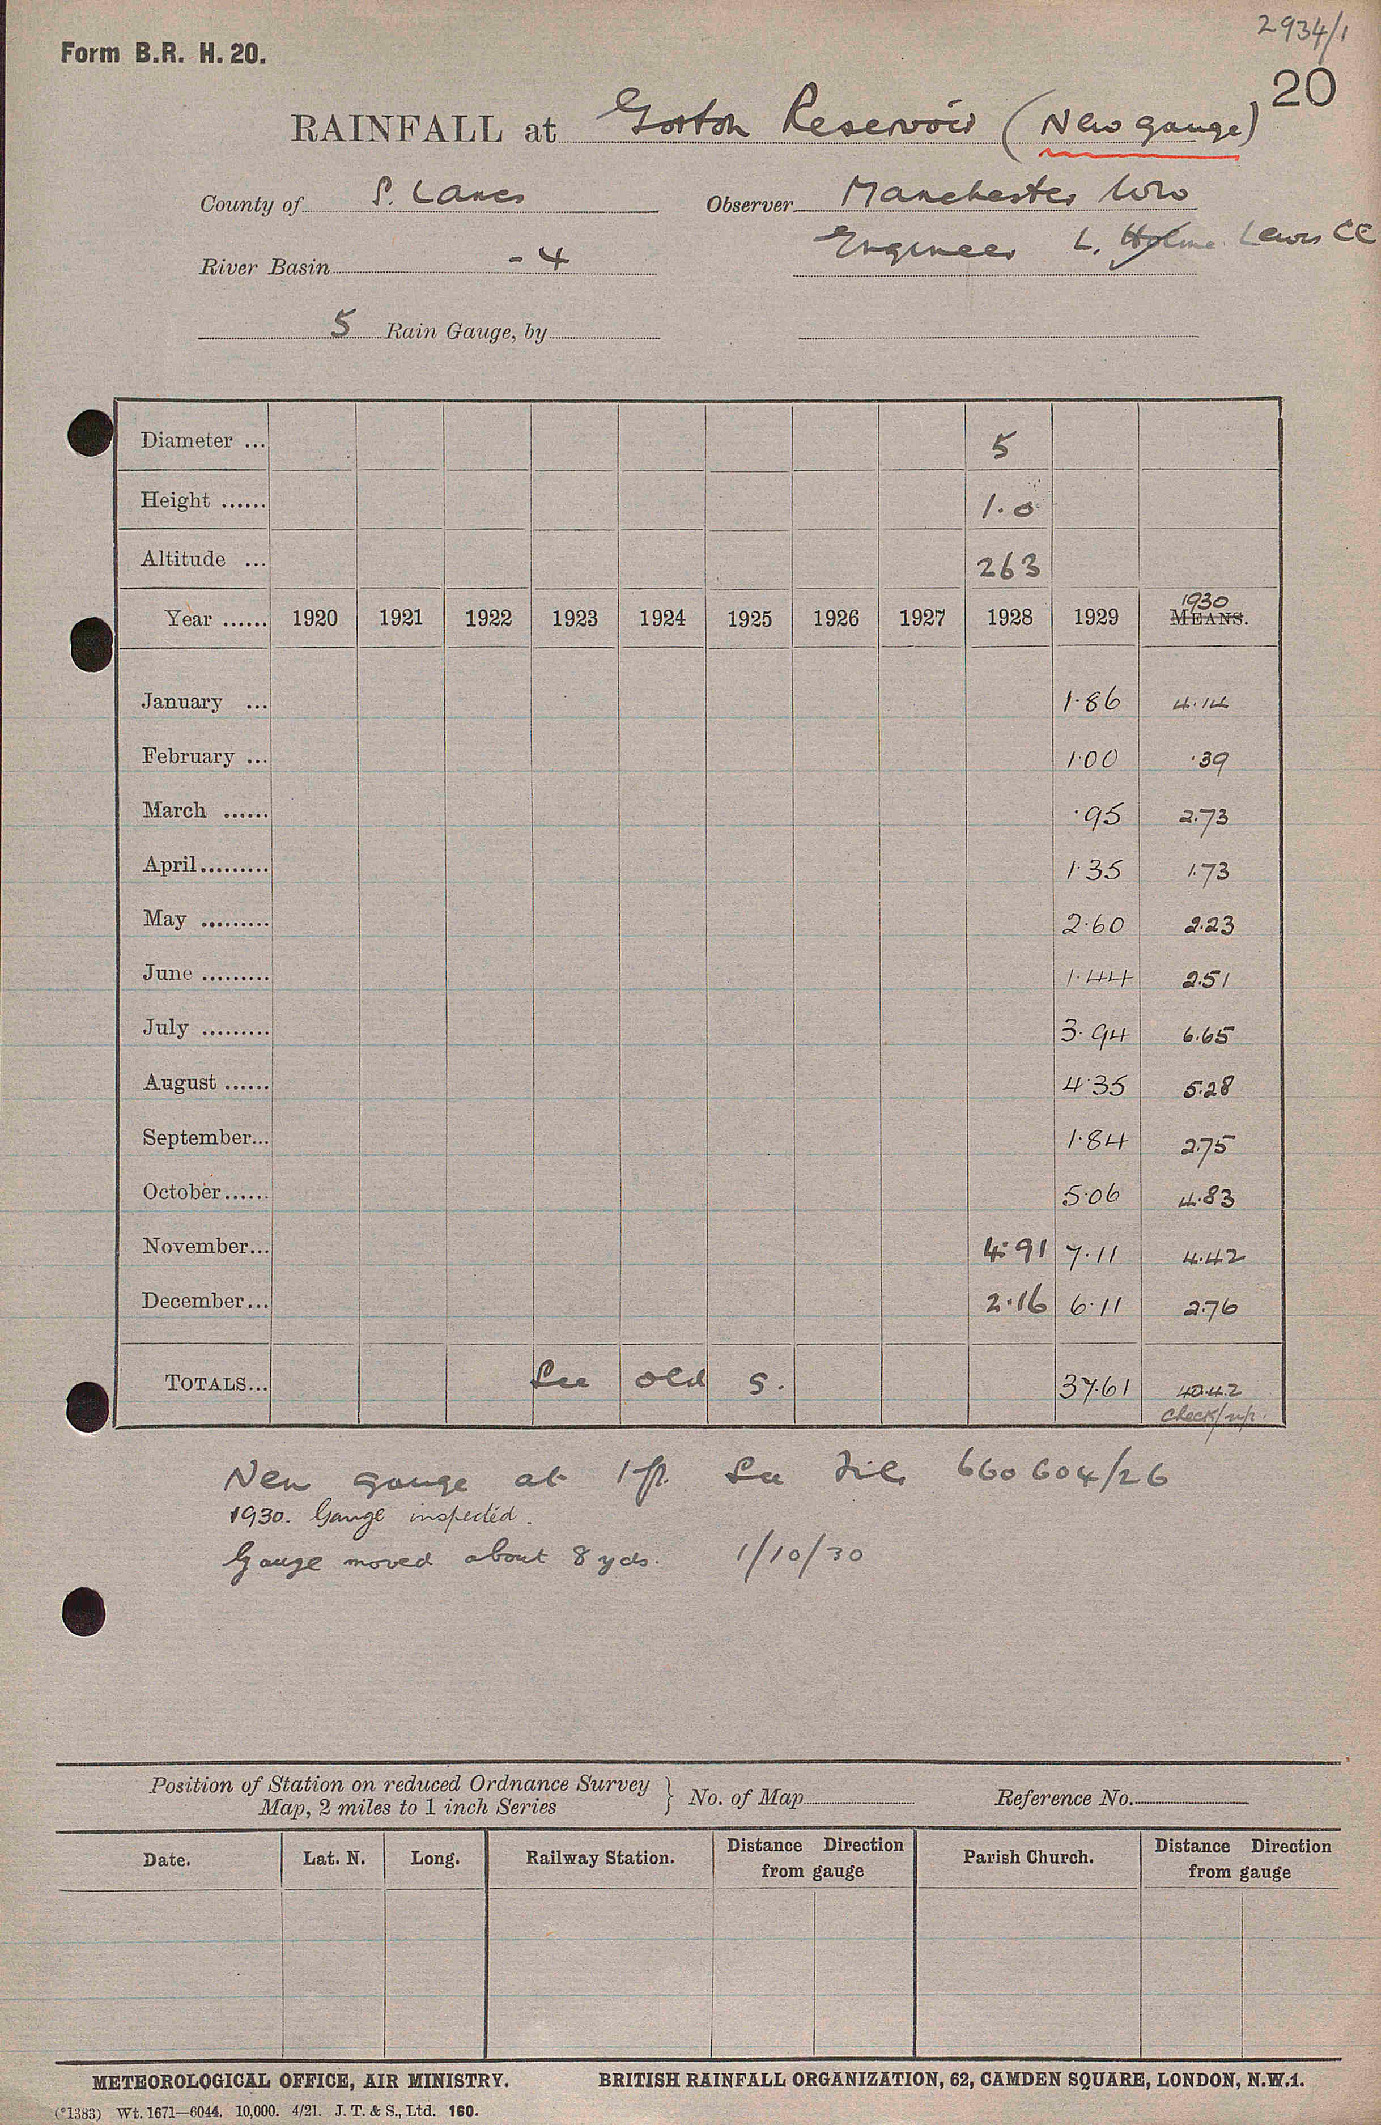 2934/1
Form B.R. H. 20.
20
RAINFALL at Gorton Reservoir (New gauge)
County of S. Lancs Observer Manchester W.W
River Basin - 4 Engineer L. Holme Lewis CE
5 Rain Gauge, by
Diameter ... 5
Height ...... 1.0
Altitude ... 263
Year ...... 1920 1921 1922 1923 1924 1925 1926 1927 1928 1929 1930 MEANS.
January ... 1.86 4.14
February ... 1.00 .39
March ...... .95 2.73
April......... 1.35 1.73
May ......... 2.60 2.23
June ......... 1.44 2.51
July ......... 3.94 6.65
August ...... 4.35 5.28
September... 1.84 2.75
October...... 5.06 4.83
November... 4.91 7.11 4.42
December... 2.16 6.11 2.76
TOTALS... See old g. 37.61 40.42
check
New gauge at 1 ft. See File 660604/26
1930. Gauge inspected.
Gauge moved about 8 yds. 1/10/30
Position of Station on reduced Ordnance Survey
Map, 2 miles to 1 inch Series } No. of Map Reference No.
Date. Lat. N. Long. Railway Station. Distance Direction from gauge Parish Church. Distance Direction from gauge
METEOROLOGICAL OFFICE, AIR MINISTRY. BRITISH RAINFALL ORGANIZATION, 62, CAMDEN SQUARE, LONDON, N.W.1.
(*1383) Wt. 1671—6044. 10,000. 4/21. J. T. & S., Ltd. 160.